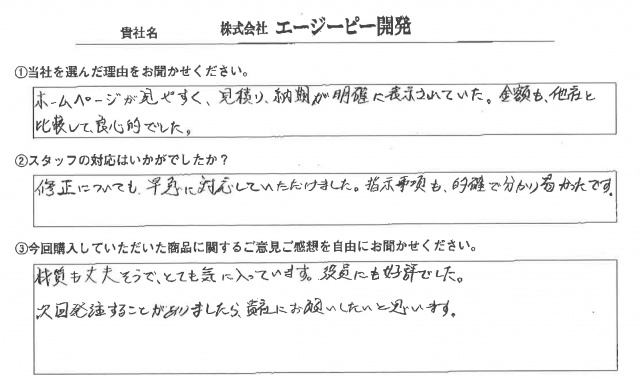 貴社名 株式会社 エージーピー開発
①当社を選んだ理由をお聞かせください。
ホームページが見やすく、見積り、納期が明確に表示されていた。金額も、他店と
比較して、良心的でした。
②スタッフの対応はいかがでしたか？
修正についても、早急に対応していただけました。指示事項も、的確で分かり易かったです。
③今回購入していただいた商品に関するご意見ご感想を自由にお聞かせください。
材質も丈夫そうで、とても気に入っています。役員にも好評でした。
次回発注することがありましたら、貴社にお願いしたいと思います。